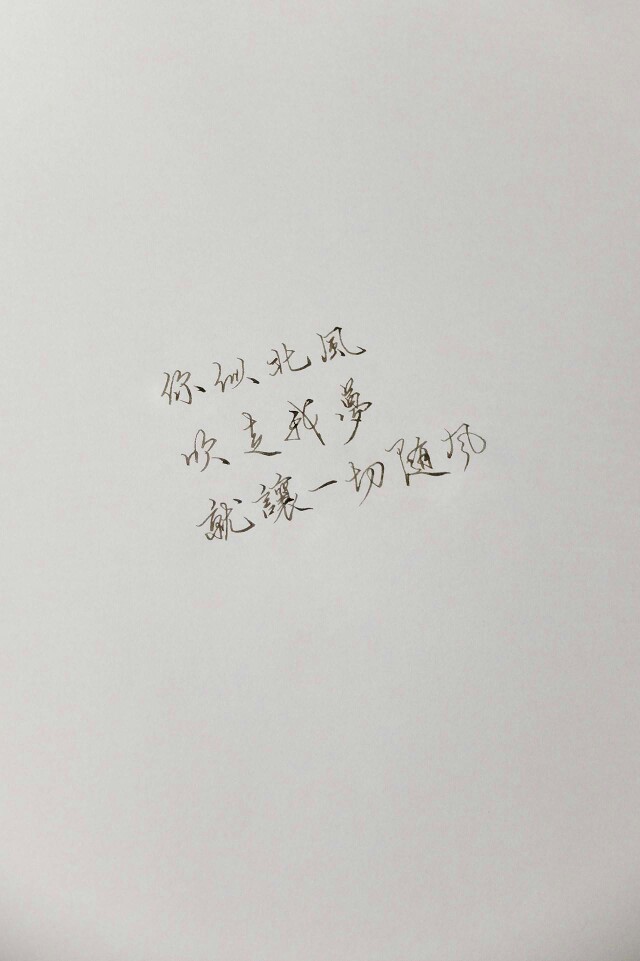 你似北風
吹走我夢
就讓一切随風